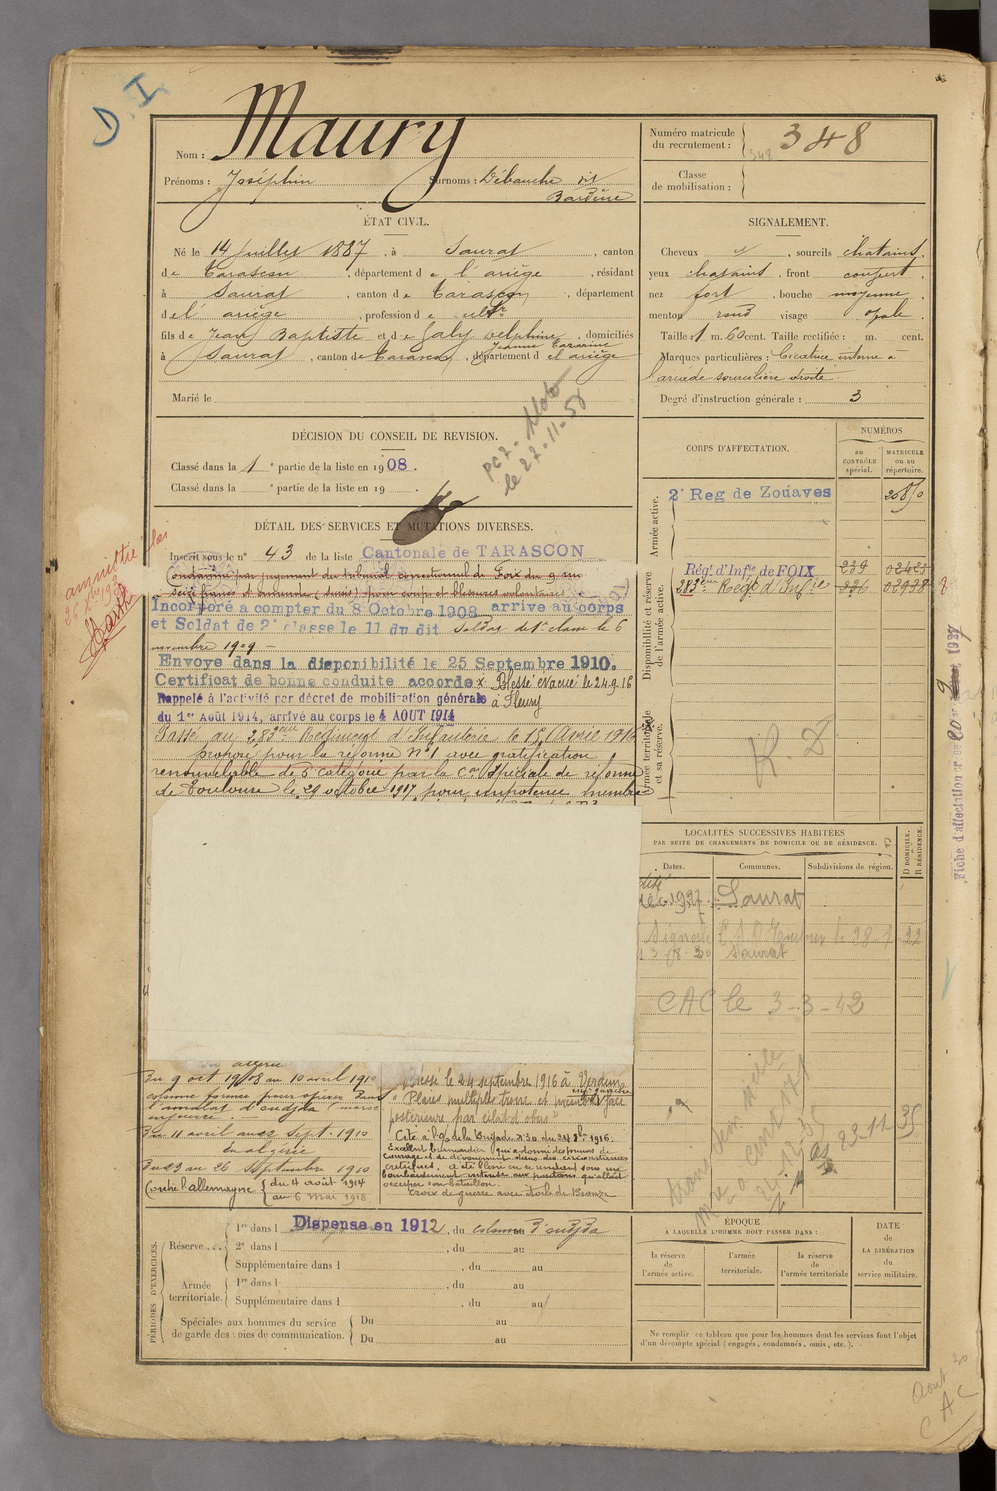 D. I
Nom : Maury
Prénoms : Joséphin Surnoms : Débauche dit
Bardère
Numéro matricule
du recrutement : 348
348
Classe
de mobilisation :
ÉTAT CIVIL.
Né le 14 Juillet 1887, à Saurat, canton
de Tarascon, département de l'ariège, résidant
à Saurat, canton de Tarascon, département
de l'ariège, profession de cultr
fils de Jean Baptiste et de Galy delphine, domiciliés
Jeanne
à Saurat, canton de Tarascon, département de l ariège
Marié le
SIGNALEMENT.
Cheveux, sourcils chatains,
yeux chatains, front couvert,
nez fort, bouche moyenne,
menton rond visage ovale.
Taille : 1 m. 60 cent. Taille rectifiée : m. cent.
Marques particulières : Cicatrice interne à
l'arcade sourcilière droite.
Degré d'instruction générale : 3
DÉCISION DU CONSEIL DE REVISION.
Classé dans la 1e partie de la liste en 1908.
Classé dans la e partie de la liste en 19 .
le 27-11-58
CORPS D'AFFECTATION.
NUMÉROS
au
CONTRÔLE
spécial.
MATRICULE
ou au
répertoire.
Armée active.
2e Reg de Zouaves
Disponibilité et réserve
de l'armée active.
Régt d'Infie de FOIX 239
283ème Régt d'Infie 236
Armée territoriale
et sa réserve.
DÉTAIL DES SERVICES ET MUTATIONS DIVERSES.
Inscrit sous le n° 43 de la liste Cantonale de TARASCON
Condamné par jugement du tribunal correctionnel de Foix du 9 mai
seize francs d'amende (sursis) pour coups et blessures volontaires
amnistié
Incorporé a compter du 8 Octobre 1908 arrive au corps
et Soldat de 2e classe le 11 du dit Soldat de 1e classe le 6
novembre 1909 -
Envoye dans la disponibilité le 25 Septembre 1910.
Certificat de bonne conduite accorde x Blessé évacué le 24.9.16
Rappelé à l'activité par décret de mobilisation générale à Fleury
du 1er Août 1914, arrivé au corps le 4 AOUT 1914
Passé au 283ème Régiment d'Infanterie le 15 Avril 1916
proposé pour la réforme N°1 avec gratification
renouvelable de 5 catégorie par la Con Spéciale de réforme
de Toulouse le 29 octobre 1917 pour impotence membre
LOCALITÉS SUCCESSIVES HABITÉES
PAR SUITE DE CHANGEMENTS DE DOMICILE OU DE RÉSIDENCE.
Dates.
Communes.
Subdivisions de région.
D DOMICILE.
R RÉSIDENCE.
Saurat
Saurat
CAC le 3-3-42
23-11 35
Fiche d'affectation
En algérie
Du 9 oct 1908 au 10 avril 1910
colonne formée pour opérer dans
l'amalat d'oudjda (maroc
en guerre
Du 11 avril au 22 Sept. 1910
En algérie
Du 23 au 26 Septembre 1910
Contre l'allemagne { du 4 août 1914
au 6 mai 1918
Blessé le 24 septembre 1916 à Verdun
"Plaies multiples tronc et membre inf. gauche face
postérieure par éclat d'obus"
Cité à l'O/ de la Brigade N°30 du 24 8bre 1916.
Excellent brancardier qui a donné des preuves de
courage et de dévouement dans des circonstances
critiques. a été blessé en se rendant sous un
bombardement intense aux positions qu'allait
occuper son bataillon.
Croix de guerre avec Etoile de Bronze
PÉRIODES D'EXERCICES.
Réserve
1re dans l Dispense en 1912, du colonne d'oudjda
2e dans l , du au
Supplémentaire dans l , du au
Armée
territoriale.
1re dans l , du au
Supplémentaire dans l , du au
Spéciales aux hommes du service
de garde des voies de communication.
Du au
Du au
ÉPOQUE
À LAQUELLE L'HOMME DOIT PASSER DANS :
la réserve
de
l'armée active.
l'armée
territoriale.
la réserve
de
l'armée territoriale
DATE
de
LA LIBÉRATION
du
service militaire.
Ne remplir ce tableau que pour les hommes dont les services font l'objet
d'un décompte spécial (engagés, condamnés, omis, etc.).
Aout 30
CAC